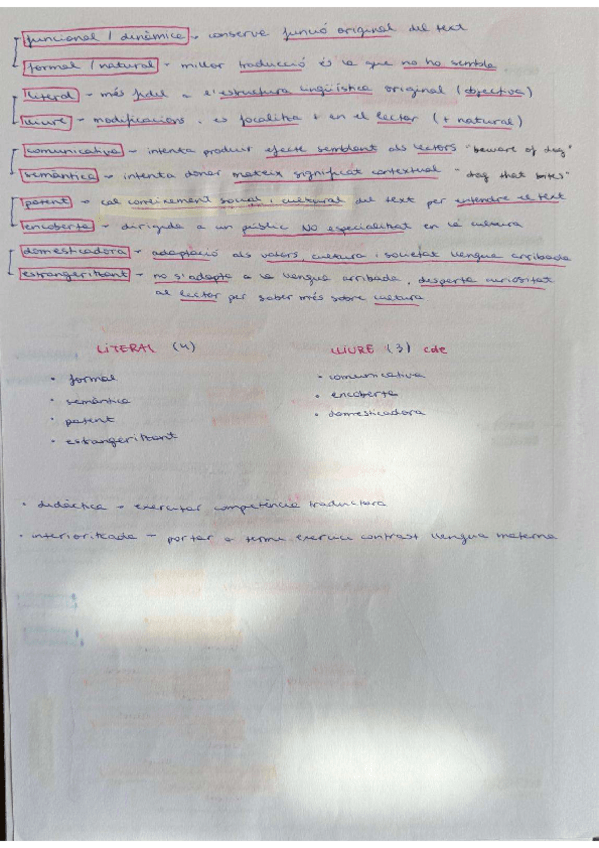 funcional / dinàmica → conserva funció original del text
formal / natural - millor traducció és la que no ho sembla
literal - més fidel a l'estructura lingüística original (objectiva)
lliure - modificacions, es focalitza + en el lector (+ natural)
comunicativa - intenta produir efecte semblant als lectors "beware of dog"
semàntica - intenta donar mateix significat contextual "dog that bites"
patent - cal coneixement social i cultural del text per entendre el text
encoberta - dirigida a un públic NO especialitzat en la cultura
domesticadora - adaptació als valors, cultura i societat llengua arribada
estrangeritzant - no s'adapta a la llengua arribada, desperta curiositat
al lector per saber més sobre cultura
LITERAL (4)
LLIURE (3) cde
• formal
• comunicativa
• semàntica
• encoberta
• patent
• domesticadora
• estrangeritzant
• didàctica → exercitar competència traductora
• interioritzada - portar a terme exercici contrast llengua materna